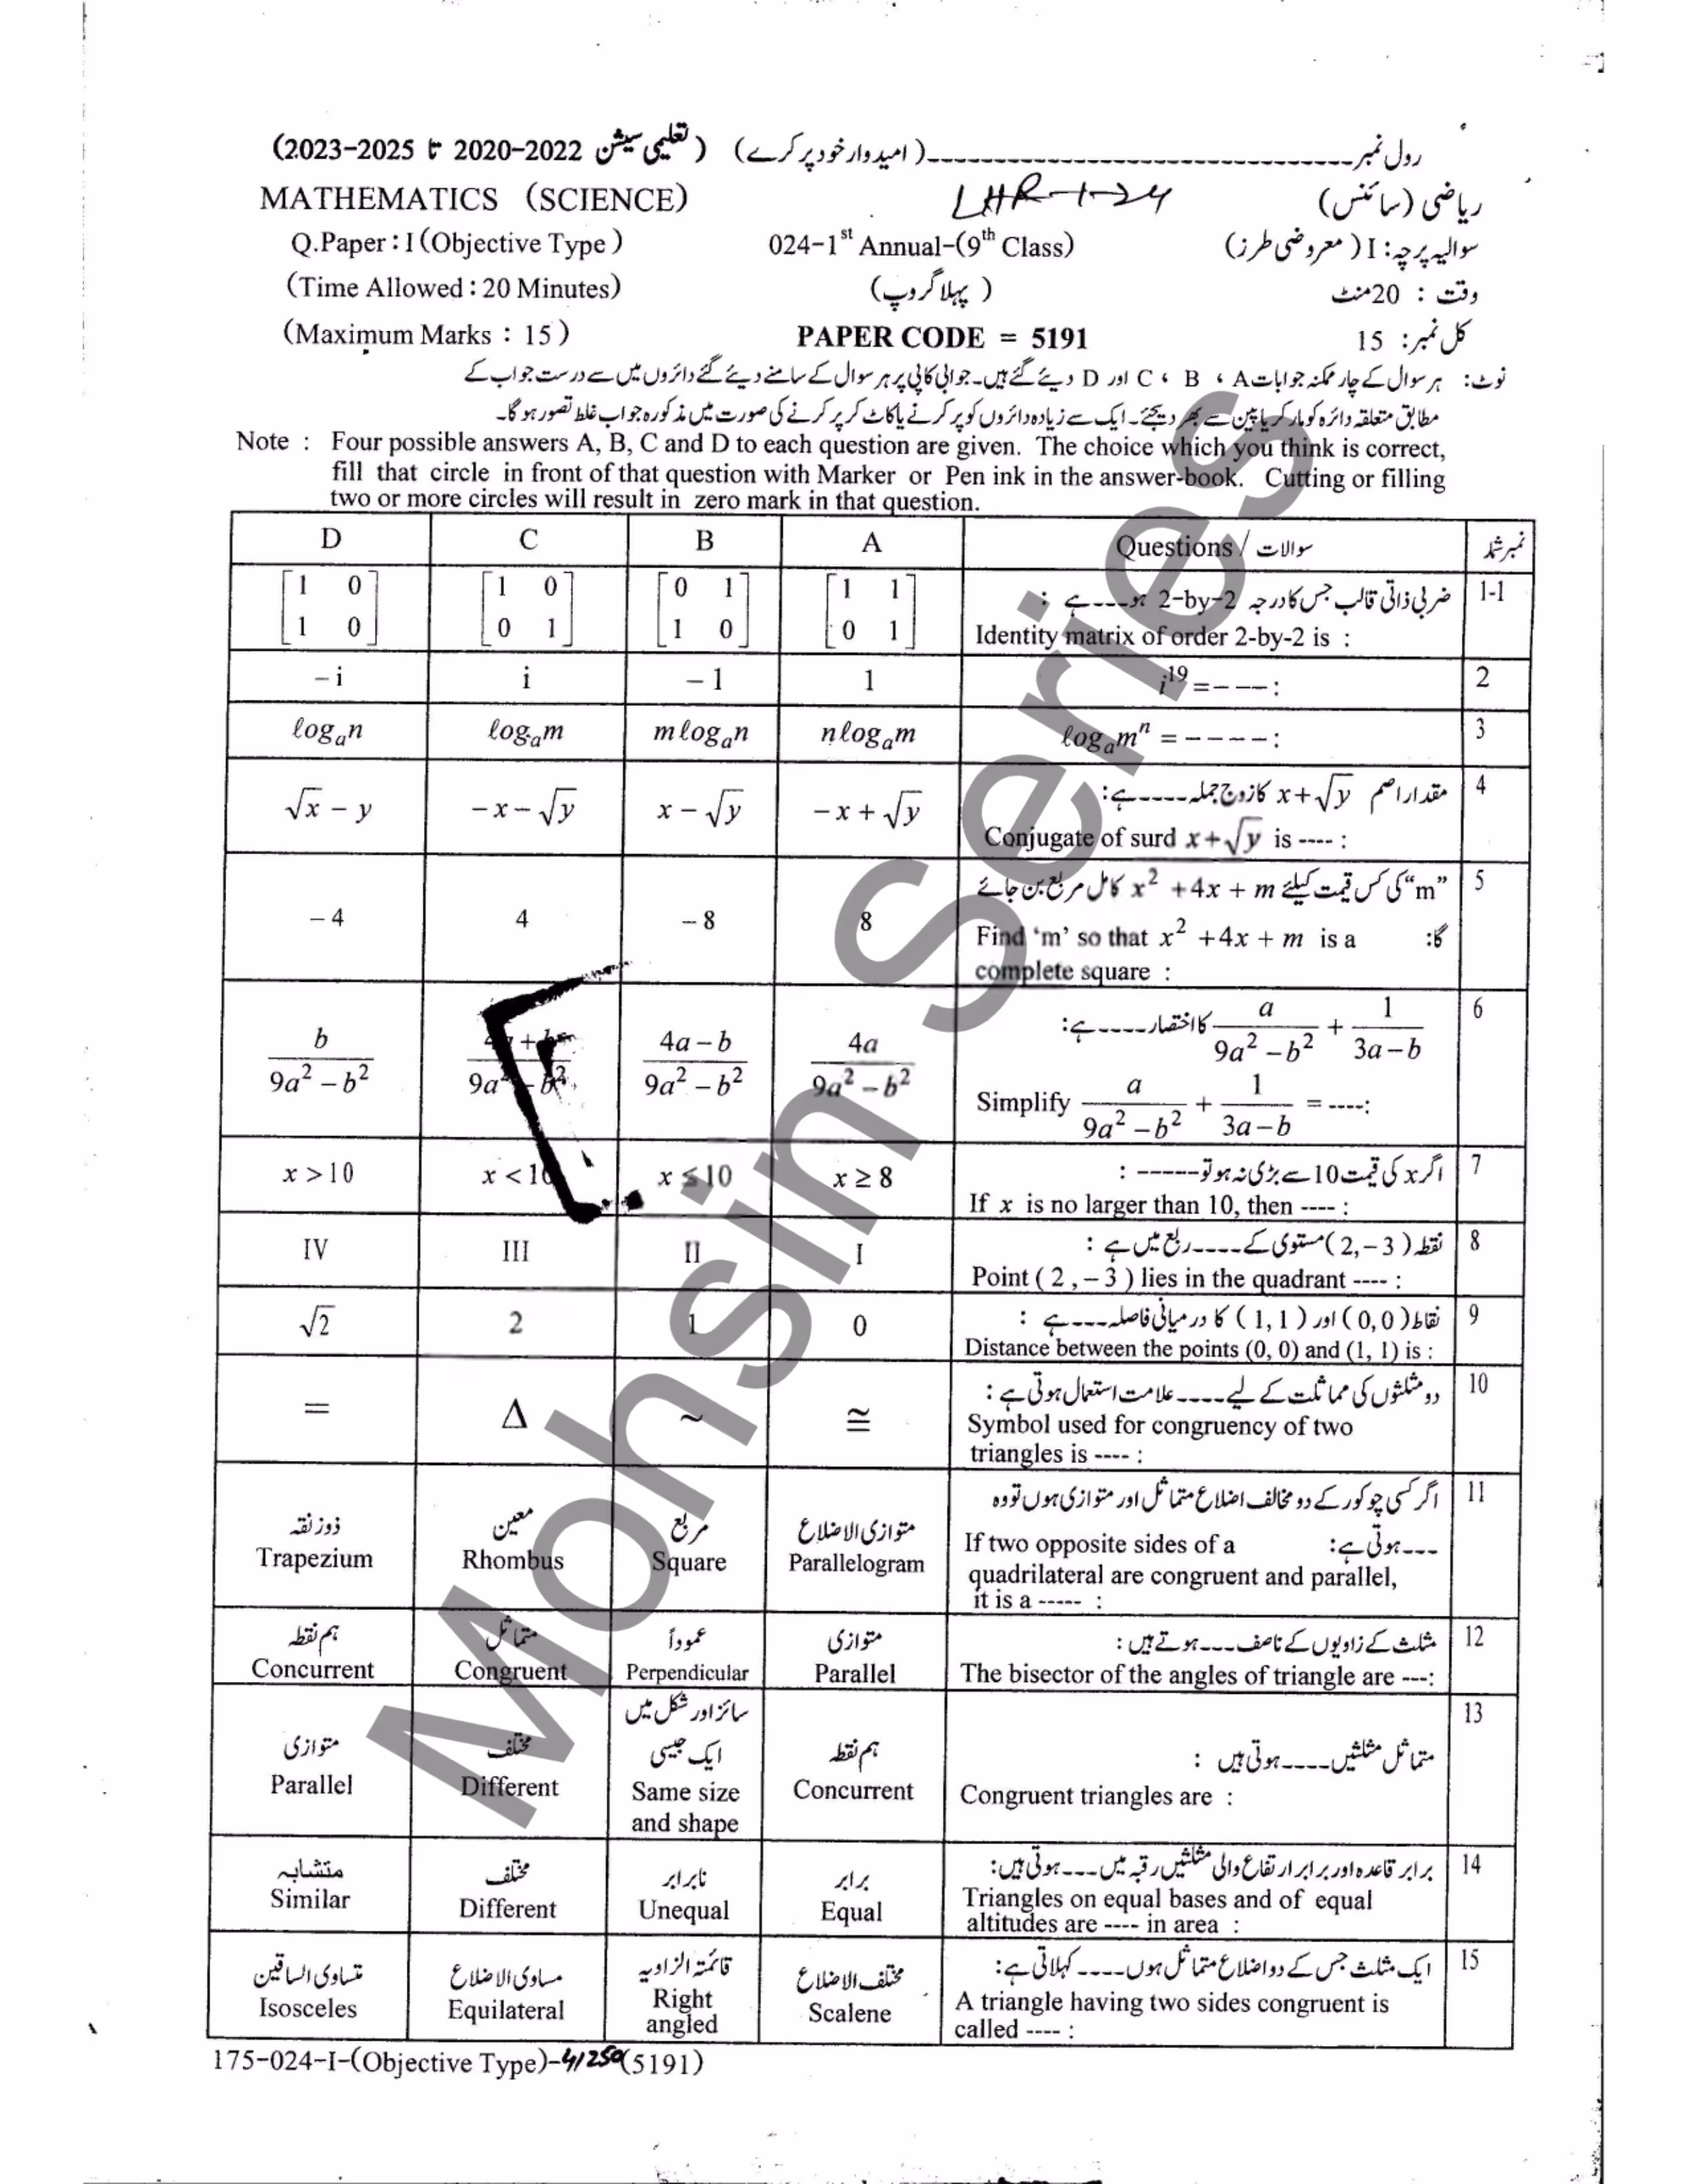 رول نمبر ـــــــــــــ (امیدوار خود پُر کرے) (تعلیمی سیشن 2022-2020 تا 2025-2023)
MATHEMATICS (SCIENCE) LHR-1-24 ریاضی (سائنس)
Q.Paper : I (Objective Type ) 024-1st Annual-(9th Class) سوالیہ پرچہ : I (معروضی طرز)
(Time Allowed : 20 Minutes) (پہلا گروپ) وقت : 20 منٹ
(Maximum Marks : 15 ) PAPER CODE = 5191 کل نمبر : 15
نوٹ: ہر سوال کے چار ممکنہ جوابات A ، B ، C اور D دیئے گئے ہیں۔ جوابی کاپی پر ہر سوال کے سامنے دیئے گئے دائروں میں سے درست جواب کے
مطابق متعلقہ دائرہ کو مارکر یا پین سے بھر دیجئے۔ ایک سے زیادہ دائروں کو پُر کرنے یا کاٹ کر پُر کرنے کی صورت میں مذکورہ جواب غلط تصور ہو گا۔
Note : Four possible answers A, B, C and D to each question are given. The choice which you think is correct,
fill that circle in front of that question with Marker or Pen ink in the answer-book. Cutting or filling
two or more circles will result in zero mark in that question.
D C B A Questions / سوالات نمبر شمار
[1 0] [1 0] [0 1] [1 1] ضربی ذاتی قالب جس کا درجہ 2-by-2 ہو ----ہے : 1-1
[1 0] [0 1] [1 0] [0 1] Identity matrix of order 2-by-2 is :
– i i – 1 1 i¹⁹ = – – – : 2
ℓogₐn ℓogₐm mℓogₐn nℓogₐm ℓogₐmⁿ = – – – – : 3
√x – y – x – √y x – √y – x + √y مقدار اصم x + √y کا زوج جملہ -----ہے: 4
Conjugate of surd x + √y is ---- :
– 4 4 – 8 8 “m” کی کس قیمت کیلئے x² + 4x + m کامل مربع بن جائے گا: 5
Find ‘m’ so that x² + 4x + m is a
complete square :
b/(9a² – b²) (4a – b)/(9a² – b²) 4a/(9a² – b²) a/(9a² – b²) + 1/(3a – b) کا اختصار ----ہے: 6
Simplify a/(9a² – b²) + 1/(3a – b) = ----:
x > 10 x < 10 x ≤ 10 x ≥ 8 اگر x کی قیمت 10 سے بڑی نہ ہو تو ------ : 7
If x is no larger than 10, then ---- :
IV III II I نقطہ ( 2, – 3 ) مستوی کے ----ربع میں ہے : 8
Point ( 2 , – 3 ) lies in the quadrant ---- :
√2 2 1 0 نقاط ( 0,0 ) اور ( 1,1 ) کا درمیانی فاصلہ ---ہے : 9
Distance between the points (0, 0) and (1, 1) is :
= Δ ~ ≅ دو مثلثوں کی مماثلت کے لیے ----علامت استعمال ہوتی ہے : 10
Symbol used for congruency of two
triangles is ---- :
اگر کسی چوکور کے دو مخالف اضلاع متماثل اور متوازی ہوں تو وہ 11
ذوزنقہ معین مربع متوازی الاضلاع ---ہوتی ہے:
Trapezium Rhombus Square Parallelogram If two opposite sides of a
quadrilateral are congruent and parallel,
it is a ----- :
ہم نقطہ متماثل عموداً متوازی مثلث کے زاویوں کے ناصف ---ہوتے ہیں : 12
Concurrent Congruent Perpendicular Parallel The bisector of the angles of triangle are ---:
متوازی مختلف سائز اور شکل میں ایک جیسی ہم نقطہ متماثل مثلثیں ----ہوتی ہیں : 13
Parallel Different Same size and shape Concurrent Congruent triangles are :
متشابہ مختلف نابرابر برابر برابر قاعدہ اور برابر ارتفاع والی مثلثیں رقبہ میں ---ہوتی ہیں: 14
Similar Different Unequal Equal Triangles on equal bases and of equal
altitudes are ---- in area :
متساوی الساقین مساوی الاضلاع قائمۃ الزاویہ مختلف الاضلاع ایک مثلث جس کے دو اضلاع متماثل ہوں ----کہلاتی ہے: 15
Isosceles Equilateral Right angled Scalene A triangle having two sides congruent is
called ---- :
175-024-I-(Objective Type)-41250(5191)
Mohsin Series